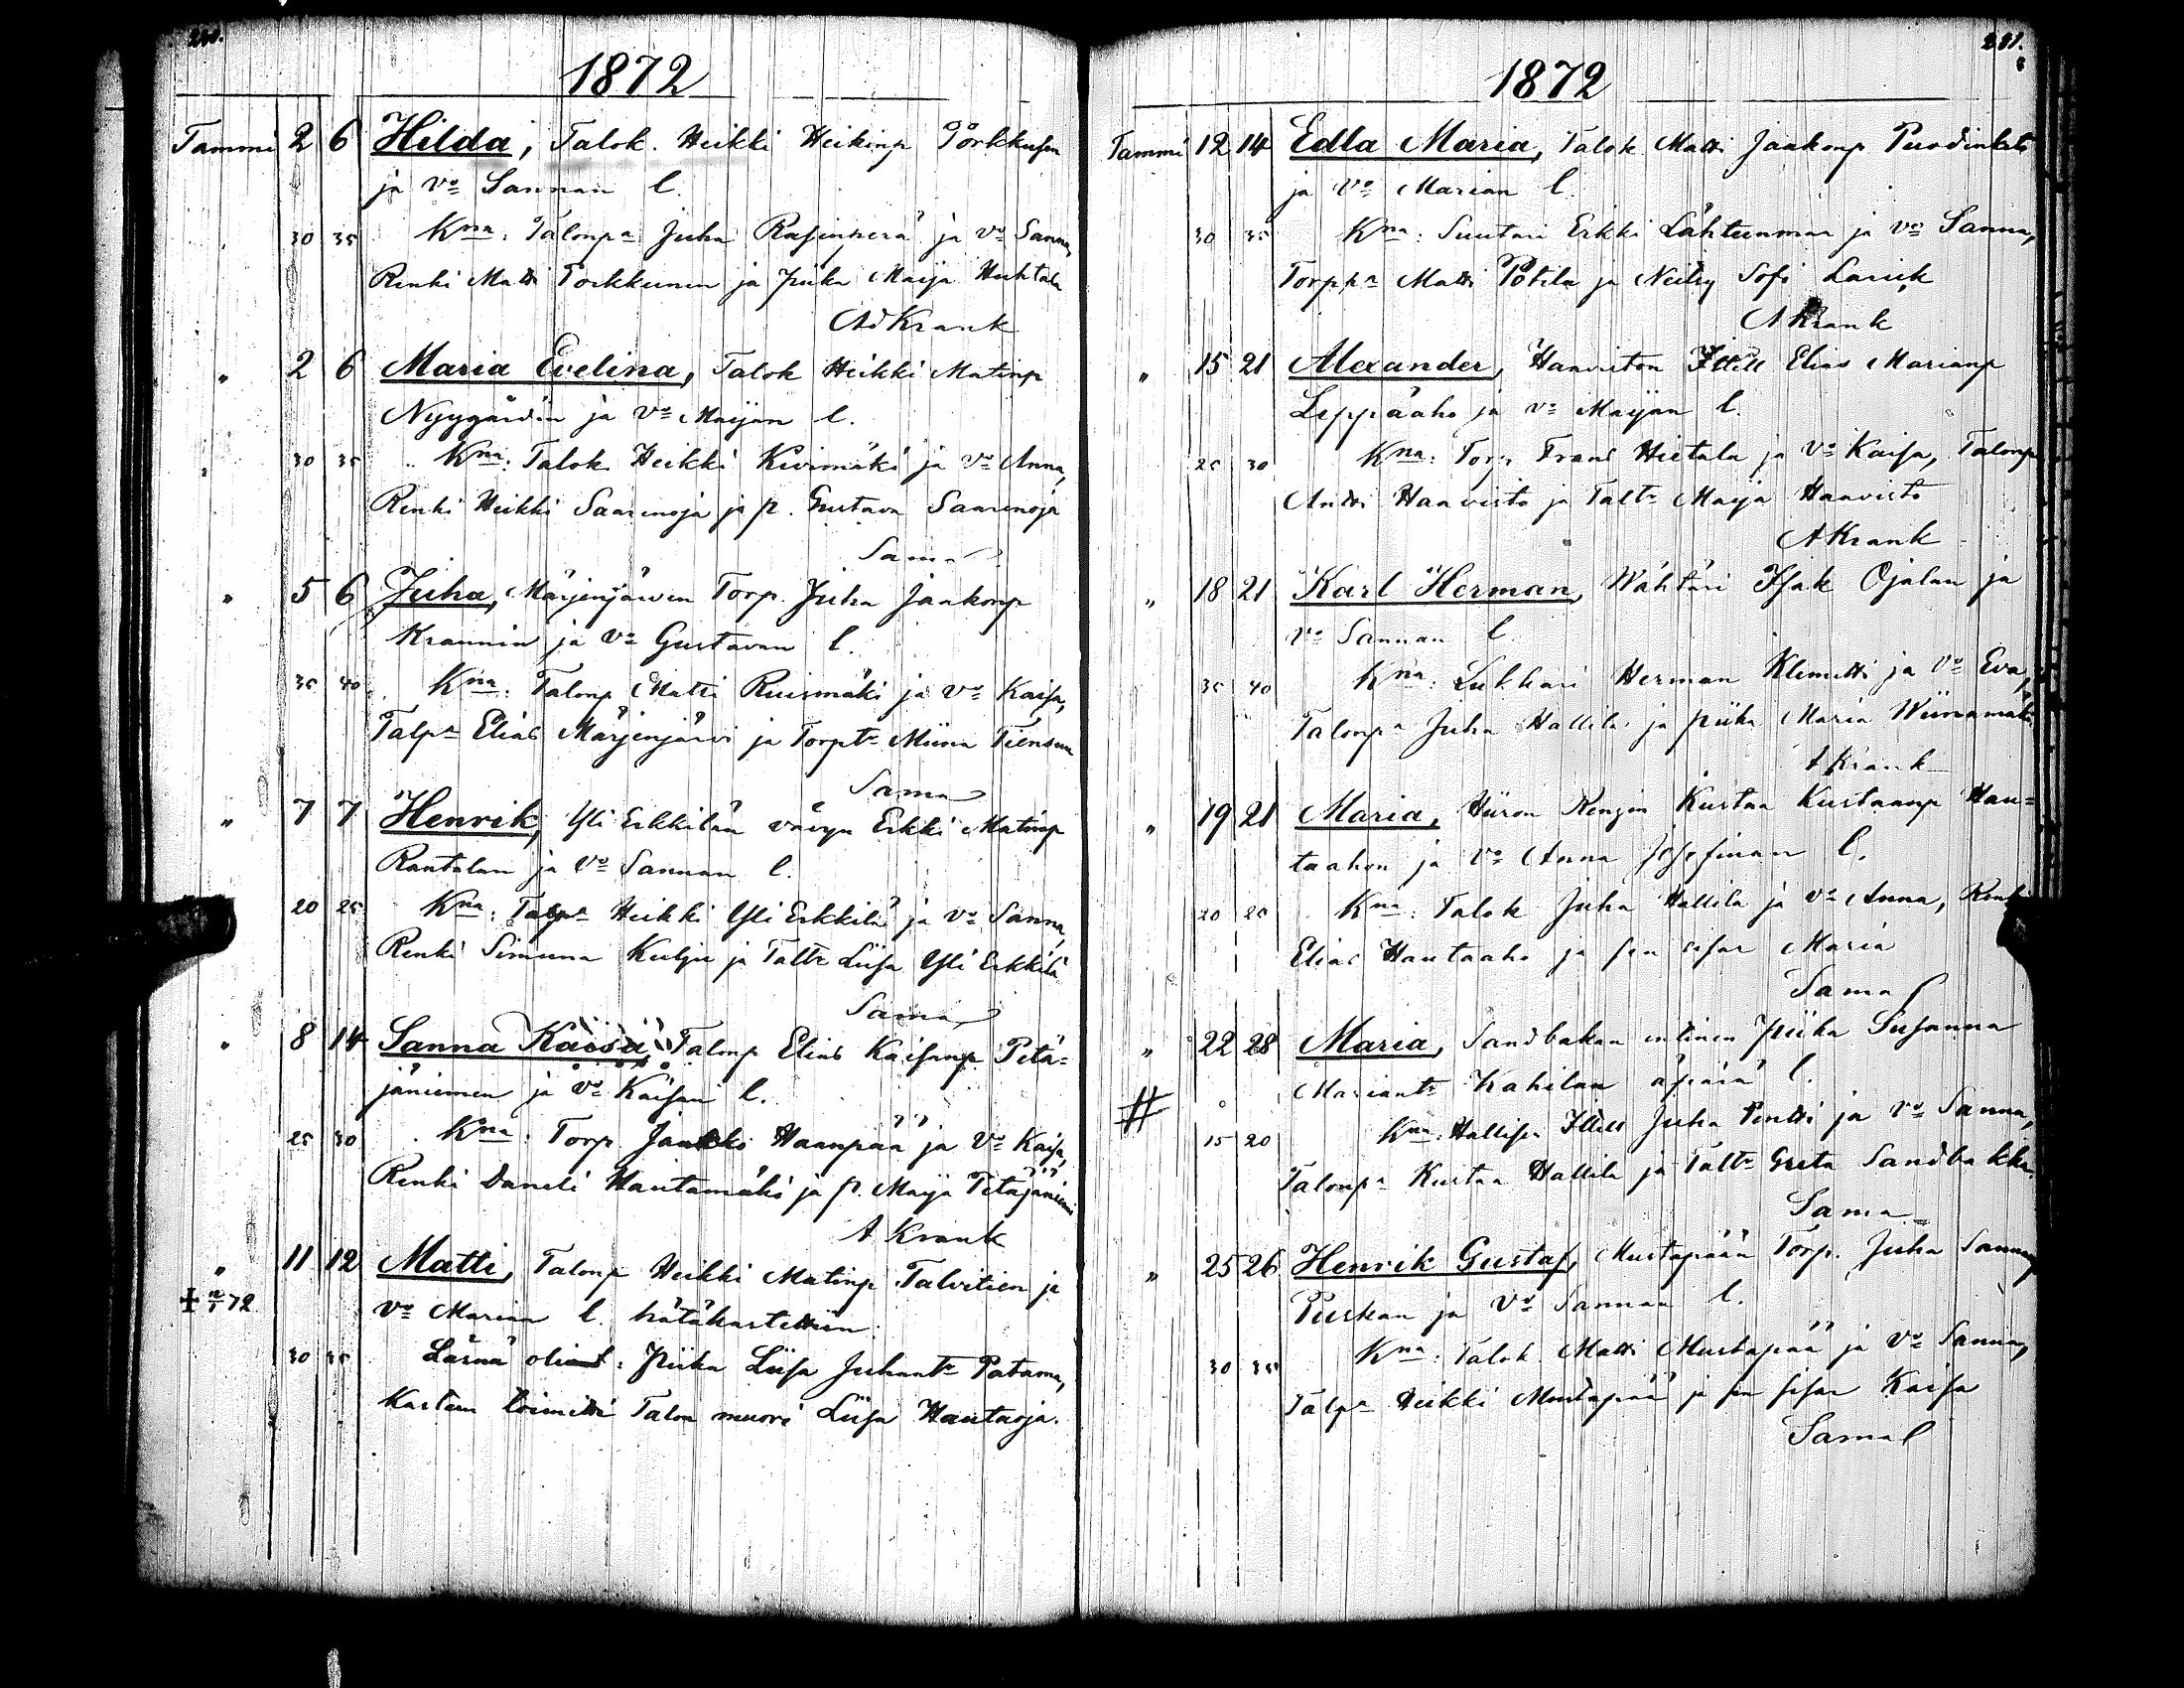 281.
1872
Tammi 2 6 Hilda, Talok. Heikki Heikinp Torkkusen
ja vo Sannan l.
30 35 Kna: Talonpa Juha Rasinperä ja vo Sanna,
Renki Matti Torkkunen ja piika Maija Huhtala
Ad Krank
" 2 6 Maria Evelina, Talok Heikki Matinp
Nyygårdin ja vo Maijan l.
30 35 Kna: Talok Heikki Kivimäki ja vo Anna,
Renki Heikki Saarenoja ja p. Gustava Saarenoja
Sama
" 5 6 Juha, Märjenjärven Torp. Juha Jaakonp
Krannin ja vo Gustavan l.
35 40 Kna: Talonp Matti Ruismäki ja vo Kaisa,
Talpa Elias Märjenjärvi ja Torptr Miina Tiensuu
Sama
" 7 7 Henrik, Yli Erkkilän vävyn Erkki Matinp
Rantalan ja vo Sannan l.
20 25 Kna: Talpa Heikki Yli Erkkilä ja vo Sanna,
Renki Simuna Kulju ja Taltr Liisa Yli Erkkilä
Sama
" 8 14 Sanna Kaisa, Talonp Elias Kaisanp Petä=
jäniemen ja vo Kaisan l.
25 30 Kna: Torp. Jaakko Haanpää ja vo Kaisa,
Renki Daneli Hautamäki ja p. Maija Petäjäniemi
A Krank
" 11 12 Matti, Talonp Heikki Matinp Talvitien ja
72 vo Marian l. hätäkastettiin
30 35 Läsnä olivat: Piika Liisa Juhantr Patama,
Kasteen toimitti Talon muori Liisa Hautaoja.
1872
Tammi 12 14 Edla Maria, Talok Matti Jaakonp
ja vo Marian l.
30 35 Kna: Suutari Erkki Lähteenmäen ja vo Sanna,
Torppa Matti Pötilä ja Neitsy Sofi
A Krank
" 15 21 Alexander, Haaviston Itsell Elias Marianp
Leppäaho ja vo Maijan l.
25 30 Kna: Torp Frans Hietala ja vo Kaisa, Talonp
Antti Haavisto ja Taltr Maija Haavisto
A Krank
" 18 21 Karl Herman, Wahtäri Isak Ojalan ja
vo Sannan l.
35 40 Kna: Lukkari Herman Klemetti ja vo Eva,
Talonpa Juha Hallila ja piika Maria Wiinamäki
A Krank
" 19 21 Maria, Hiiron Rengin Kustaa Kustaanp Hau=
taahon ja vo Anna Josefinan l.
20 25 Kna: Talok Juha Hallila ja vo Anna, Renki
Elias Hautaaho ja sen sisar Maria
Sama
" 22 28 Maria, Sandbakan entinen piika Susanna
# Mariantr Kahilan äpärä l.
15 20 Kna: Itsell Juha Pentti ja vo Sanna,
Talonpa Kustaa Hallila ja Taltr Greta Sandbakka
Sama
" 25 26 Henrik Gustaf, Mustapään Torp. Juha Sannanp
Puskan ja vo Sannan l.
30 35 Kna: Talok Matti Mustapää ja vo Sanna,
Talpa Heikki Mustapää ja sen sisar Kaisa
Sama